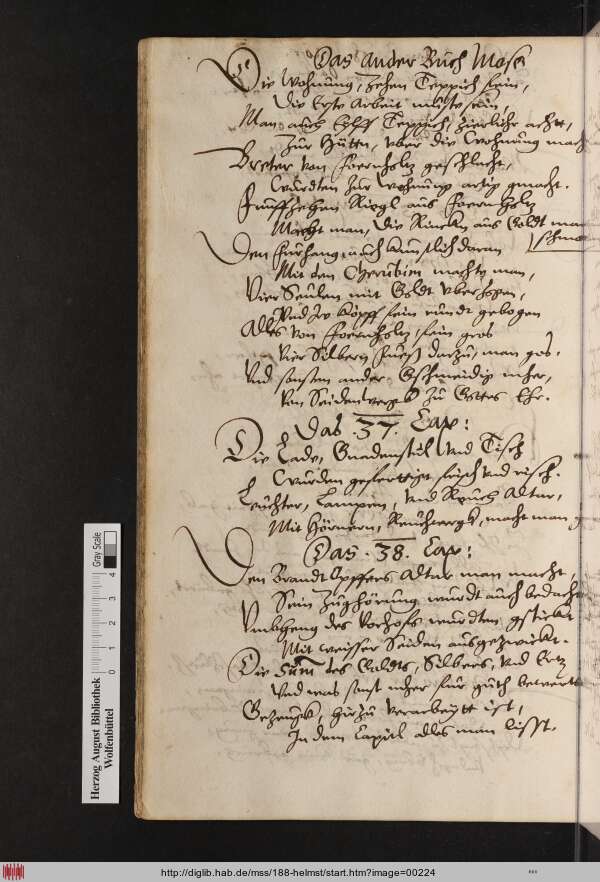 Das ander Buch Mose
Die Wohnung, zehen Teppich fein,
Die Erste Arbeit muste sein,
Man auch Eylff Teppich, zierlich achtt,
Zur Hüttn, vber die Wohnung mach
Breter von foernholtz geschlacht,
Wurdten zur Wohnung artig gmacht.
Funffzehen Riegl aus foernholtz
Macht man, die Rincken aus Goldt man
schmo
Den furhang, auch kunstlich daran
Mit den Cherubim machts man,
Vier Seulen mit Goldt vberzogen,
Vnd Ire köpff fein rundt gebogen
Alles von foernholtz, fein gros
Vier Silbern fuess darzu, man gos,
Vnd sonsten ander Gschmeidig mher,
Von Seidenwergk zu Gottes Ehr.
Das .37. Cap:
Die Lade, Gnadenstul Vnd Tisch
Wurden gefertiget frisch vnd risch.
Leuchter, Lampen, Vnd Reuch Altar,
Mit Hörnern, Reuchwergk, macht man g
Das .38. Cap:
Den Brandt Opffers Altar man macht,
Sein Zughörung wurdt auch bedacht
Vmbheng des Vorhofs wurdten gstickt
Mit weisser Seiden ausgezwickt.
Die Sum des Goldts, Silbers, Vnd Ertz
Vnd was sonst mher fur guth
Gezeugk, hirzu verarbeytt ist,
In dem Capitl alles man lisst.
Herzog August Bibliothek
Wolfenbüttel
Gray Scale
0 1 2 3 4
http://diglib.hab.de/mss/188-helmst/start.htm?image=00224